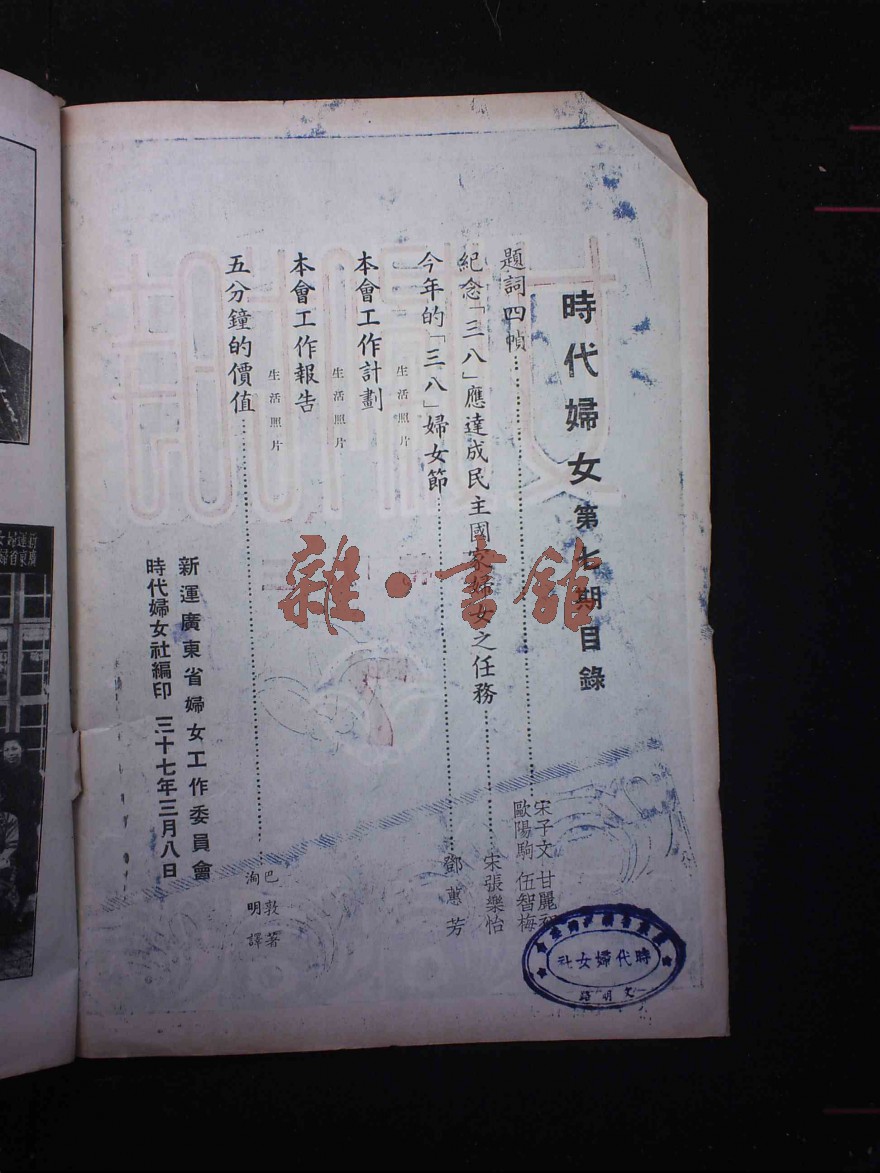 時代婦女 第七期目錄
題詞四幀……宋子文 甘麗初
歐陽駒 伍智梅
紀念「三八」應達成民主國家婦女之任務……宋張樂怡
今年的「三八」婦女節……鄧蕙芳
生活照片
本會工作計劃
生活照片
本會工作報告
生活照片
五分鐘的價值……巴敦著
洵明譯
新運廣東省婦女工作委員會
時代婦女社編印 三十七年三月八日
時代婦女社
文明路
雜·書館